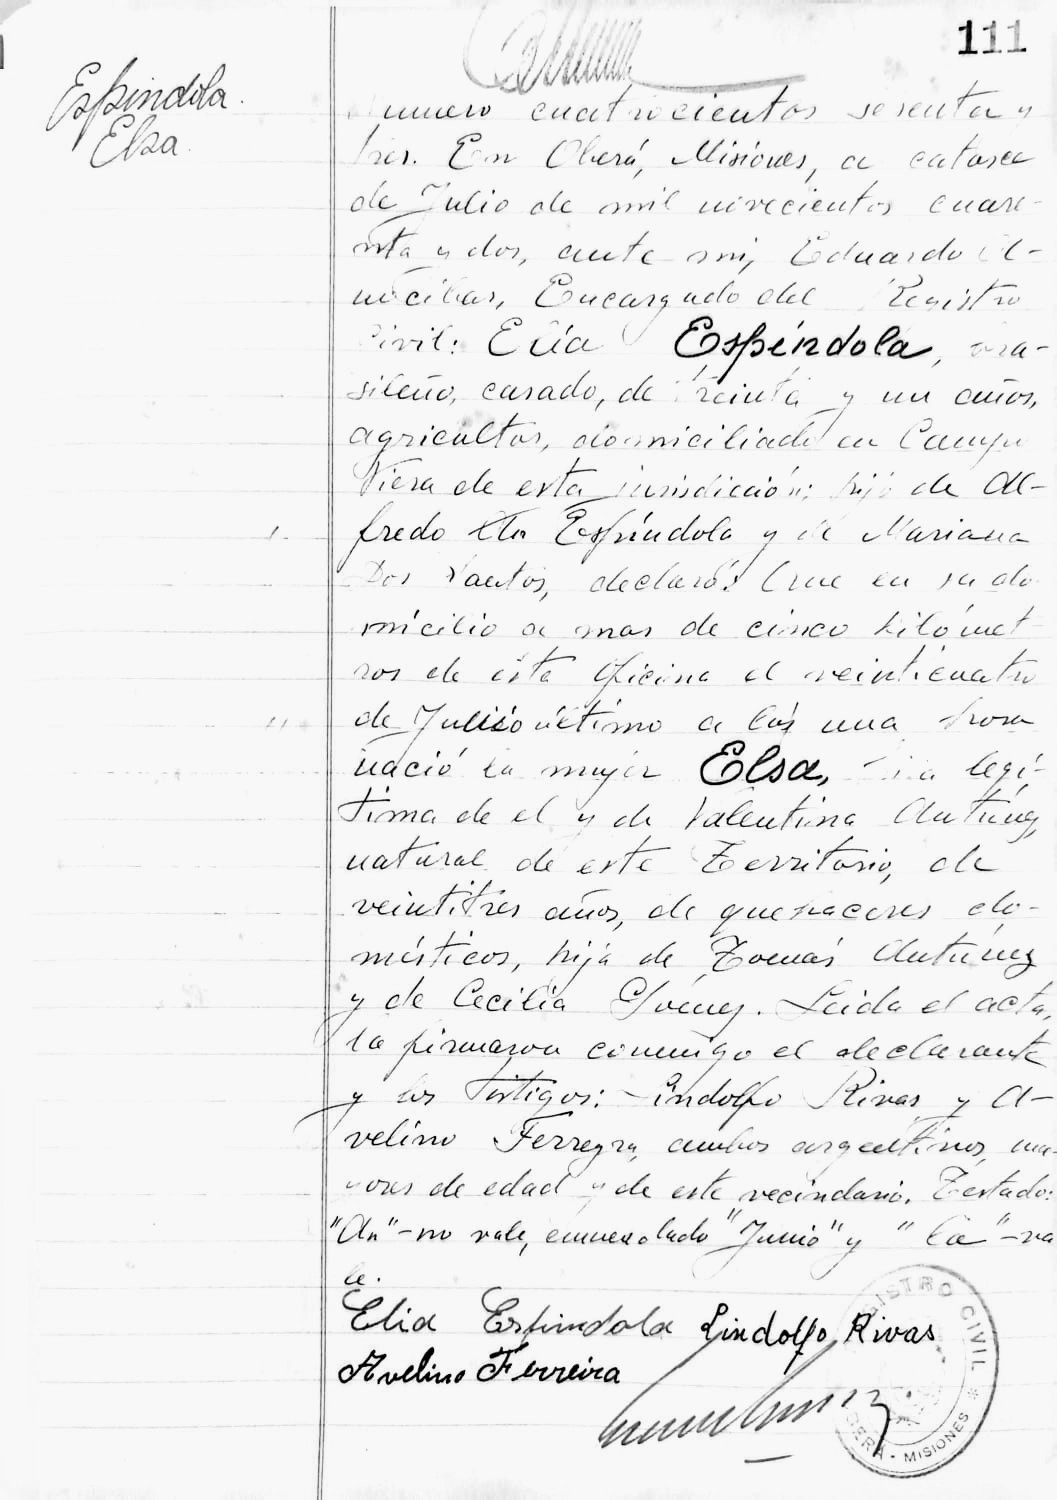 111
Espindola
Elsa.
numero cuatrocientos sesenta y
tres. En Oberá, Misiones, a catorce
de Julio de mil novecientos cuare-
nta y dos, ante mi, Eduardo
Encargado del Registro
Civil: Elia Espíndola, bra-
sileño, casado, de treinta y un años,
agricultor, domiciliado en Campo
Viera de esta jurisdicción; hijo de Al-
fredo Espíndola y de Mariana
Dos Santos, declaró: Que en su do
micilio a mas de cinco kilómet-
ros de esta Oficina el veinticuatro
de último a las una hora
nació la mujer Elsa, hija legí-
tima de el y de Valentina Antúnez,
natural de este Territorio, de
veintitres años, de quehaceres do-
mésticos, hija de Tomás Antúnez
y de Cecilia Gómez. Leida el acta,
la firmaron conmigo el declarante
y los testigos: Lindolfo Rivas y A-
velino Ferreyra, ambos argentinos, ma-
yores de edad y de este vecindario. Testado:
"An" - no vale, enmendado "Junio" y "la" - va
le.
Elia Espindola Lindolfo Rivas
Avelino Ferreira
REGISTRO CIVIL
OBERÁ - MISIONES